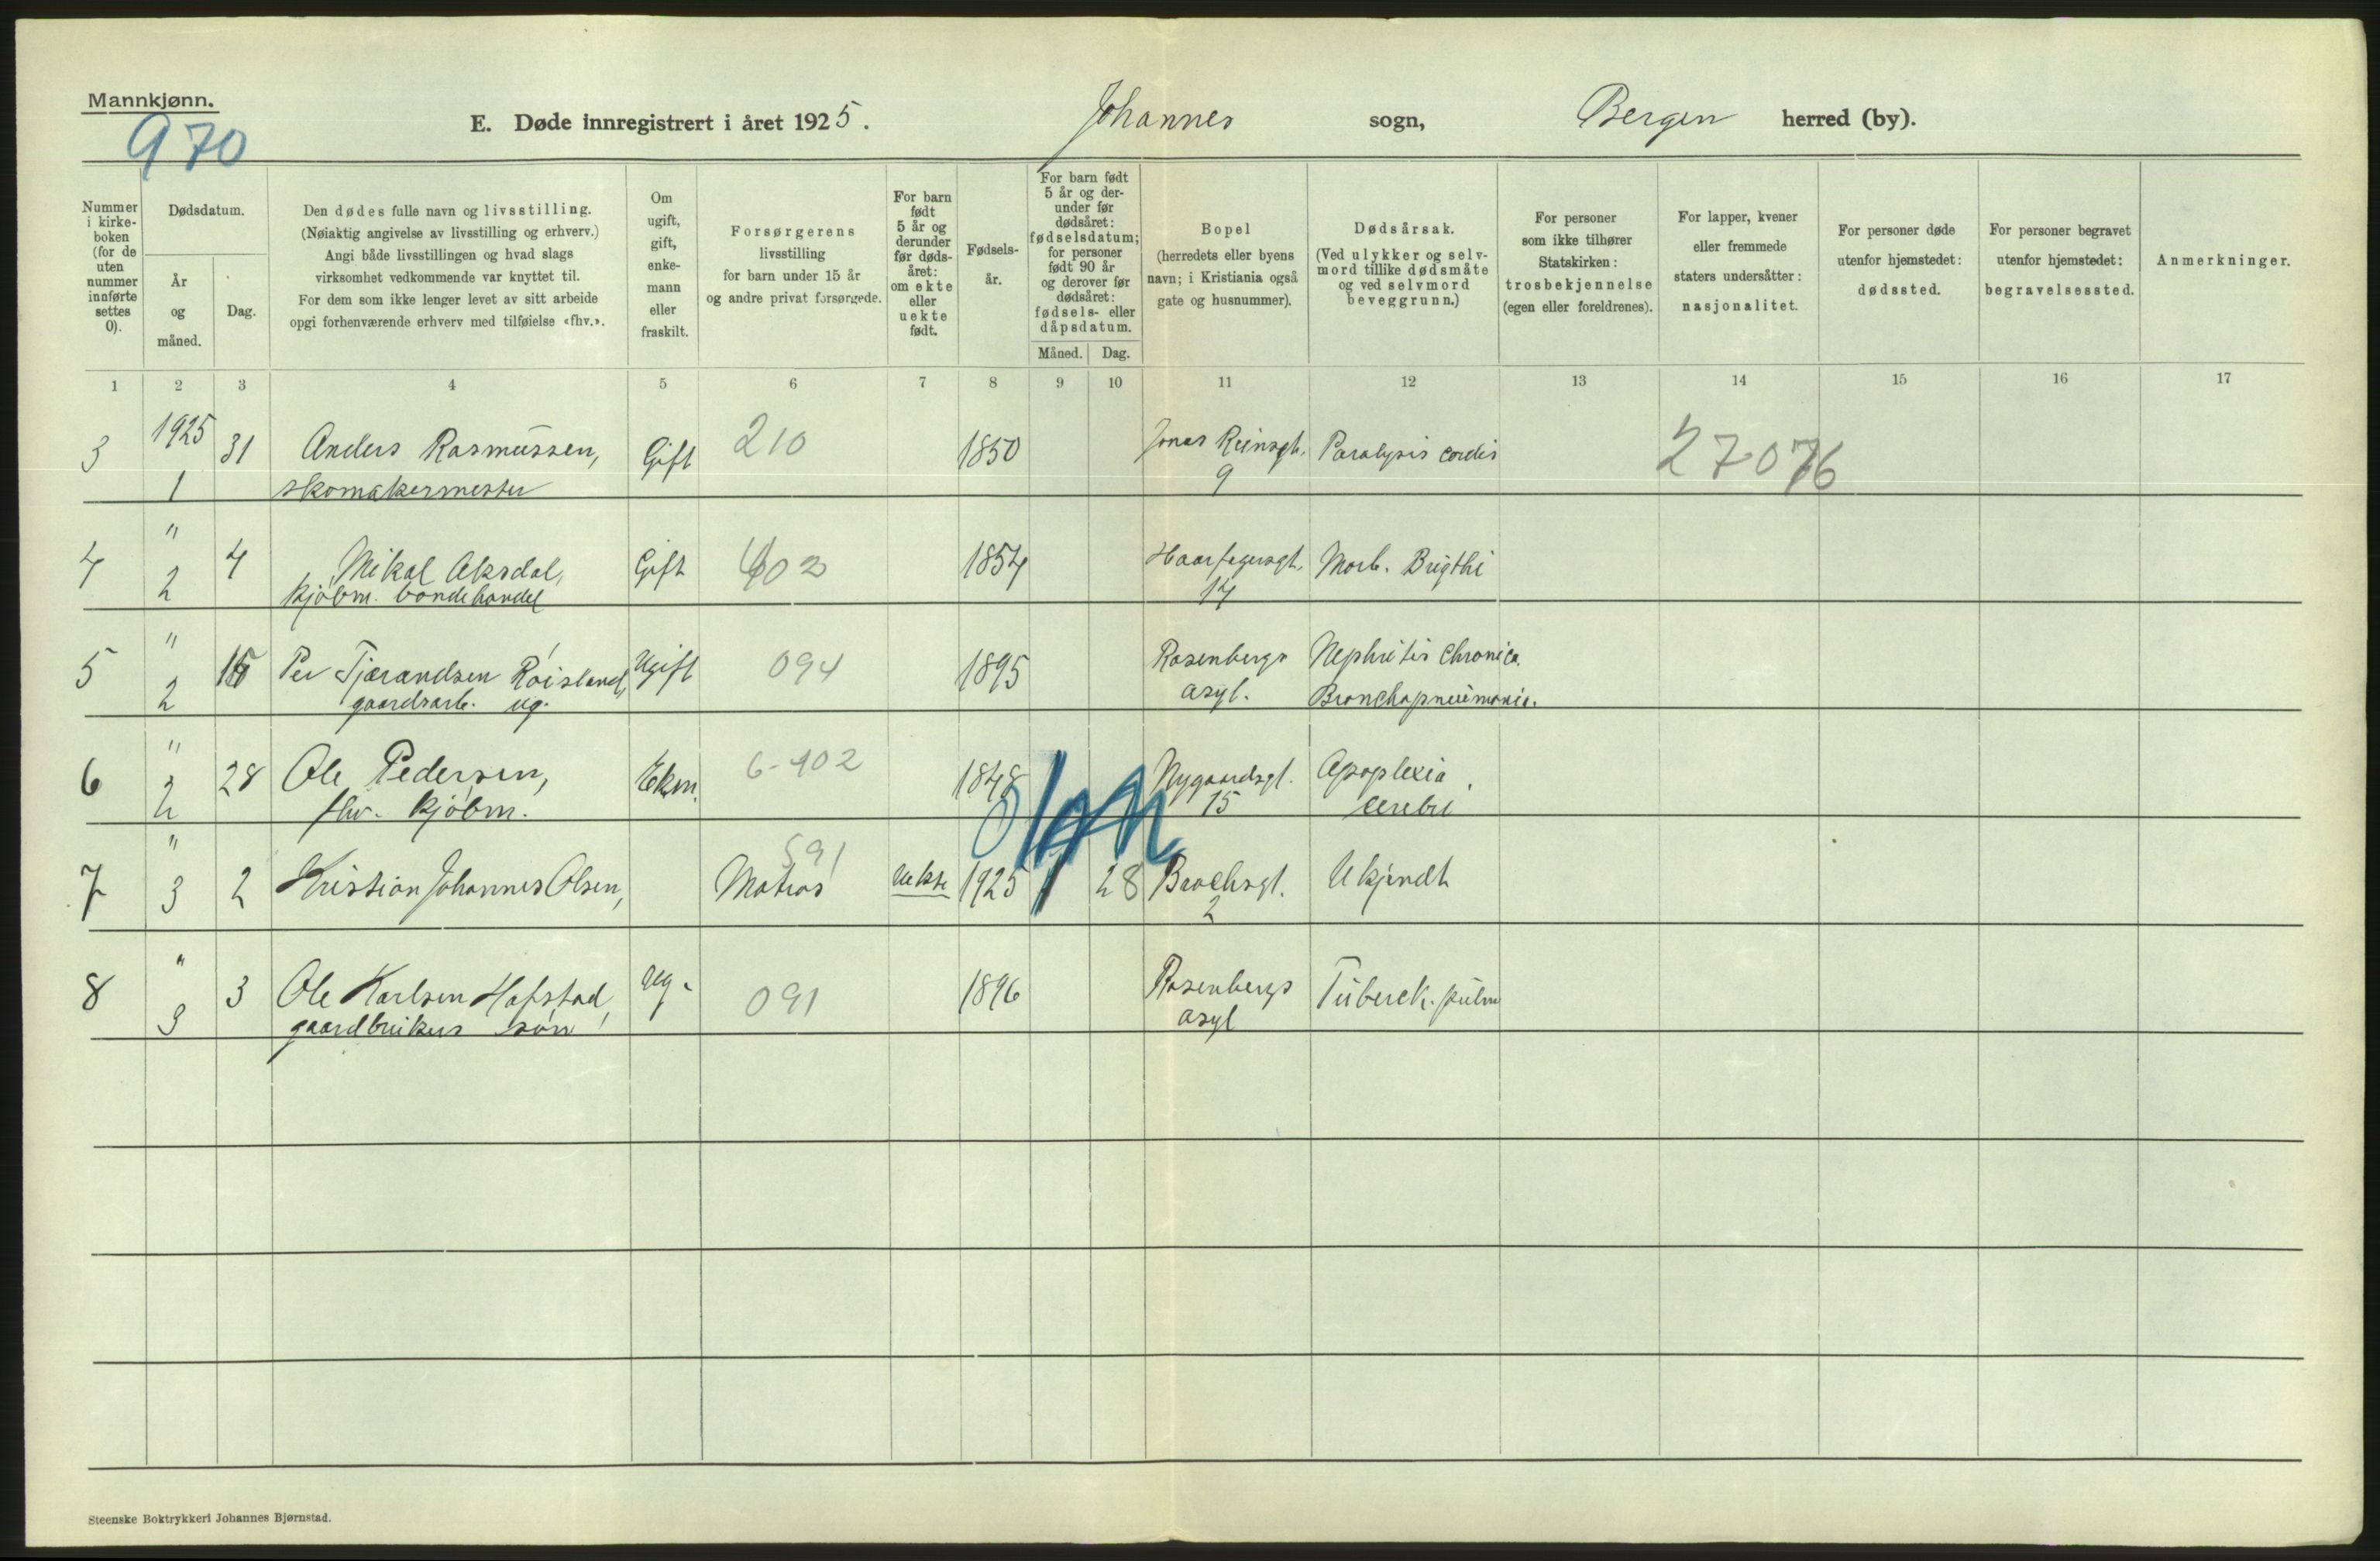 Mannkjønn.
970
E. Døde innregistrert i året 1925.
Johannes sogn,
Bergen herred (by).
Nummer
i kirke-
boken
(for de
uten
nummer
innførte
settes
0).
Dødsdatum.
År
og
måned.
Dag.
Den dødes fulle navn og livsstilling.
(Nøiaktig angivelse av livsstilling og erhverv.)
Angi både livsstillingen og hvad slags
virksomhet vedkommende var knyttet til.
For dem som ikke lenger levet av sitt arbeide
opgi forhenværende erhverv med tilføielse «fhv.».
Om
ugift,
gift,
enke-
mann
eller
fraskilt.
Forsørgerens
livsstilling
for barn under 15 år
og andre privat forsørgede.
For barn
født
5 år og
derunder
før døds-
året:
om ekte
eller
uekte
født.
Fødsels-
år.
For barn født
5 år og der-
under før
dødsåret:
fødselsdatum;
for personer
født 90 år
og derover før
dødsåret:
fødsels- eller
dåpsdatum.
Måned. Dag.
Bopel
(herredets eller byens
navn; i Kristiania også
gate og husnummer).
Dødsårsak.
(Ved ulykker og selv-
mord tillike dødsmåte
og ved selvmord
beveggrunn.)
For personer
som ikke tilhører
Statskirken:
trosbekjennelse
(egen eller foreldrenes).
For lapper, kvener
eller fremmede
staters undersåtter:
nasjonalitet.
For personer døde
utenfor hjemstedet:
dødssted.
For personer begravet
utenfor hjemstedet:
begravelsessted.
Anmerkninger.
1 2 3 4 5 6 7 8 9 10 11 12 13 14 15 16 17
3 1925 31 Anders Rasmussen, Gift 210 1850 Jonas Reinsgt. Paralysis cordis 27076
1 skomakermester 9
4 " 4 Mikal Aksdal, Gift 402 1854 Haarfagersgt. Morb. Brigthi
2 kjøbm. bondehandel 14
5 " 15 Per Tjærandsen Røisland, Ugift 094 1895 Rosenbergs Nephritis Chronica.
2 gaardsarb. ug. asyl. Bronchopneumonia.
6 " 28 Ole Pedersen, Ekm. 6-402 1848 Nygaardsgt. Apoplexia
2 fhv. kjøbm. 15 cerebri
591
7 " 2 Kristian Johannes Olsen, Matros Uekte 1925 1 28 Brochsgt. Ukjendt
3 2
8 " 3 Ole Karlsen Hafstad, ug. 091 1896 Rosenbergs Tuberck. pulm
3 gaardbrukers søn asyl
Steenske Boktrykkeri Johannes Bjørnstad.